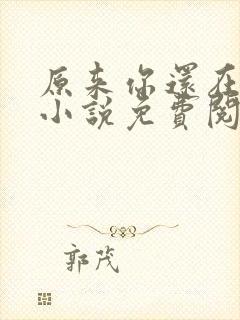 原来你還在
小說免費閱
郭茂